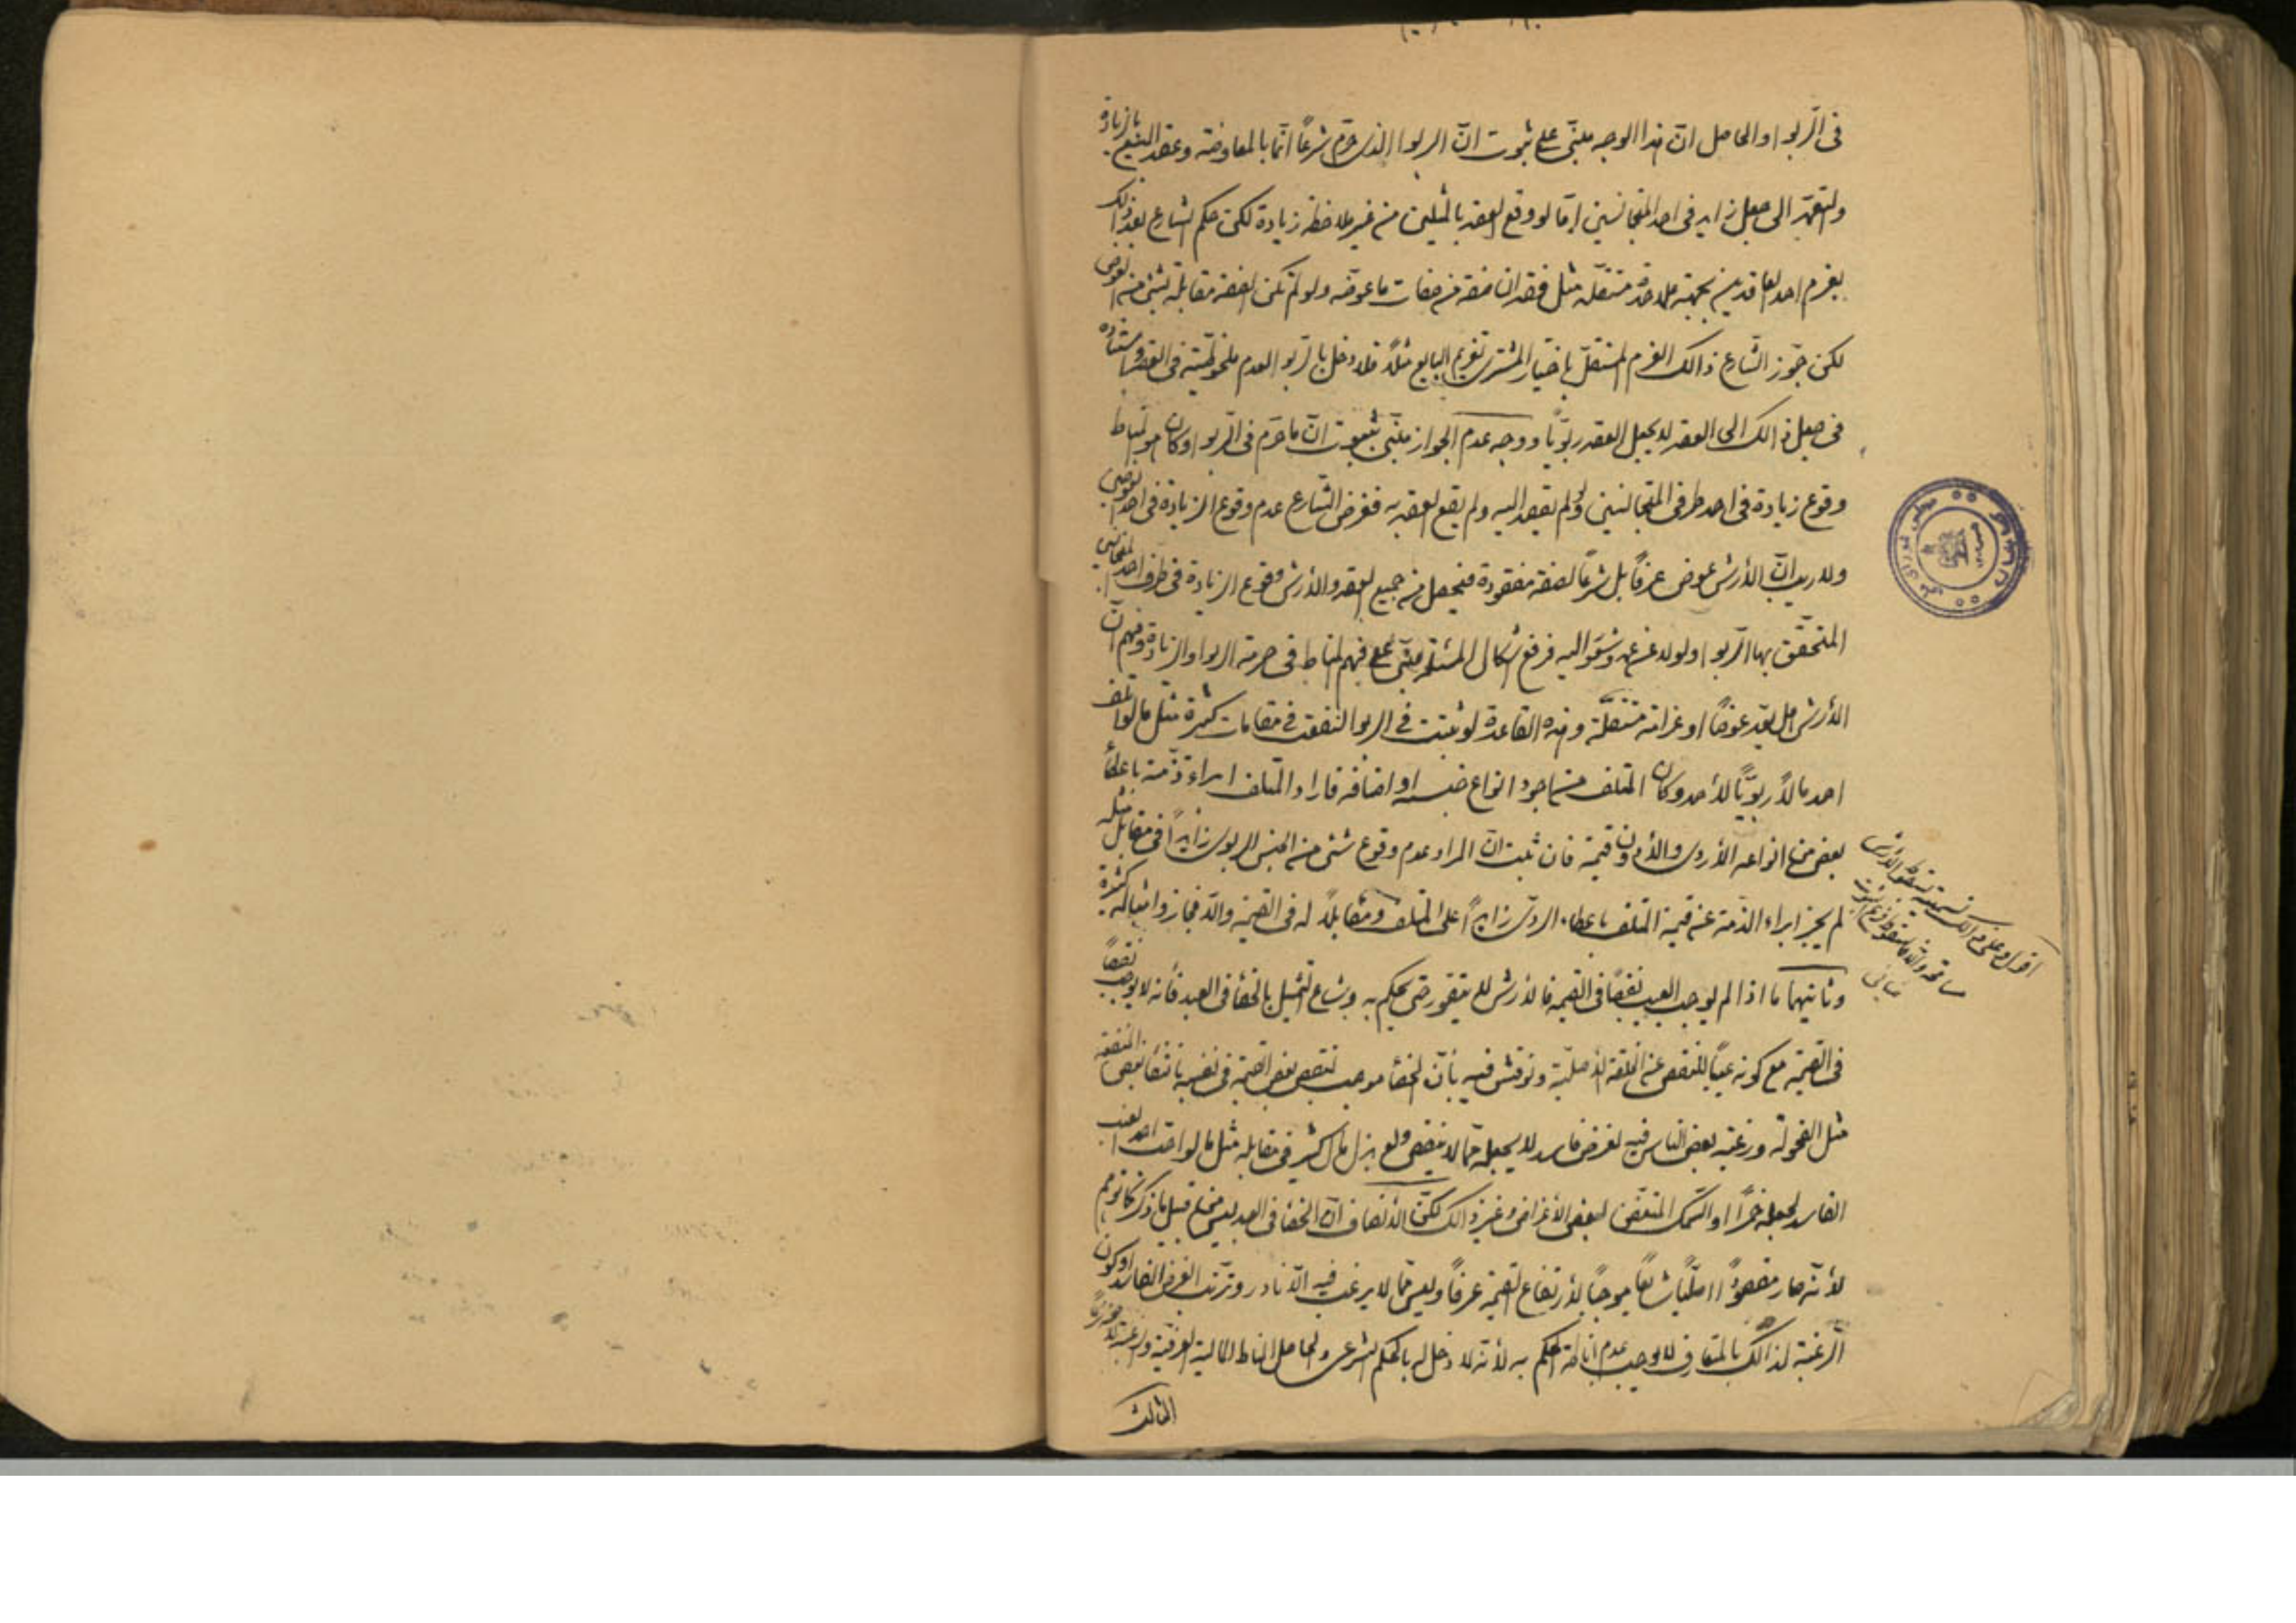 فى الربوا والحاصل ان هذا الوجه مبنّى على ثبوت انّ الربوا الذى حرّم شرعاً انّما بالمعاوضة وعقد البيع بالزيادة
والتعهّد الى جعل زايد فى احد المتجانسين امّا لو وقع العقد بالمثلين من غير ملاحظة زيادة لكن حكم الشارع بعد ذلك
بغرم احد العاقدين بجهة ملاحدة مستقلّة مثل فقدان صفة من صفات ما عوضه ولو لم تكن الصفة مقابلة بشئ من العوض
لكن جوّز الشارع ذالك الغرم المستقلّ باختيار المشترى تغريم البايع مثلاً فلا دخل بالربوا لعدم ملحوظيته فى العقد
فى جعل ذالك الى العقد لا يجعل العقد ربويّاً ووجه عدم الجواز مبنّى بثبوت انّ ما حرّم فى الربوا وكان هو المناط
وقوع زيادة فى احد طرفى المتجانسين ولو لم يقصد اليه ولم يقع العقد به ففرض الشارع عدم وقوع الزيادة فى احد العوضين
ولا ريب انّ الأرش عوض عرفاً بل شرعاً لصفة مفقودة فيحصل من جميع العقد والأرش وقوع الزيادة فى طرف احد المتجانسين
المتحقّق بها الربوا ولو لا عن عمد وشعور اليه فرفع اشكال المسئلة مبنّى على فهم المناط فى حرمة الربوا والزيادة وفهم انّ
الأرش هل يعد عوضاً او غرامة مستقلّة وهذه القاعدة لو ثبتت فى الربوا لنفعت فى مقامات كثيرة مثل ما لو اتلف
احد مالاً ربويّاً لأحد وكان المتلف من اجود انواع جنسه او اصنافه فاراد المتلف ابراء ذمّته باعطاء
بعض من انواعه الأردى والأدون قيمة فان ثبت انّ المراد عدم وقوع شئ من الجنس الربوى زايداً فى مقابل مثله
لم يجز ابراء الذمّة عن قيمة المتلف باعطاء الردىّ زايداً على المتلف ومقابلاً له فى القيمة والّا فجاز وامثاله كثيرة
وثانيهما ما اذا لم يوجب العيب نقصاً فى القيمة فالأرش لا يتصوّر حتى يحكم به وشاع التمثيل بالخصاء فى العبد فأنه لا يوجب نقصاً
فى القيمة مع كونه عيباً للنقص عن الخلقة الأصليّة ونوقش فيه بأنّ الخصاء موجب لنقص بعض القيمة فى نفسه بانتفاء بعض المنفعة
مثل الفحولة ورغبة بعض الناس فيه لغرض فاسد لا يجعله ممّا لا ينقص ولو بذل مال كثير فى مقابله مثل ما لو احتاج احد لعنب
الفاسد لجعله خمراً او السّمك المتعفّن لبعض الأغراض وغير ذالك لكنّ الأنصاف انّ الخصاء فى العبد ليس من قبيل ما ذكر كما توهم
لأنّه صار مقصوداً اصليّاً شايعاً موجباً لأرتفاع القيمة عرفاً وليس ممّا لا يرغب فيه الّا نادر وترتب الغرض الفاسد او كون
الرغبة لذالك بالمتعارف لا يوجب عدم اناطة الحكم به لأنه لا دخل له بالحكم الشرعى والحاصل المناط المالية العرفيّة
الثالث
اقول وعلى ذالك